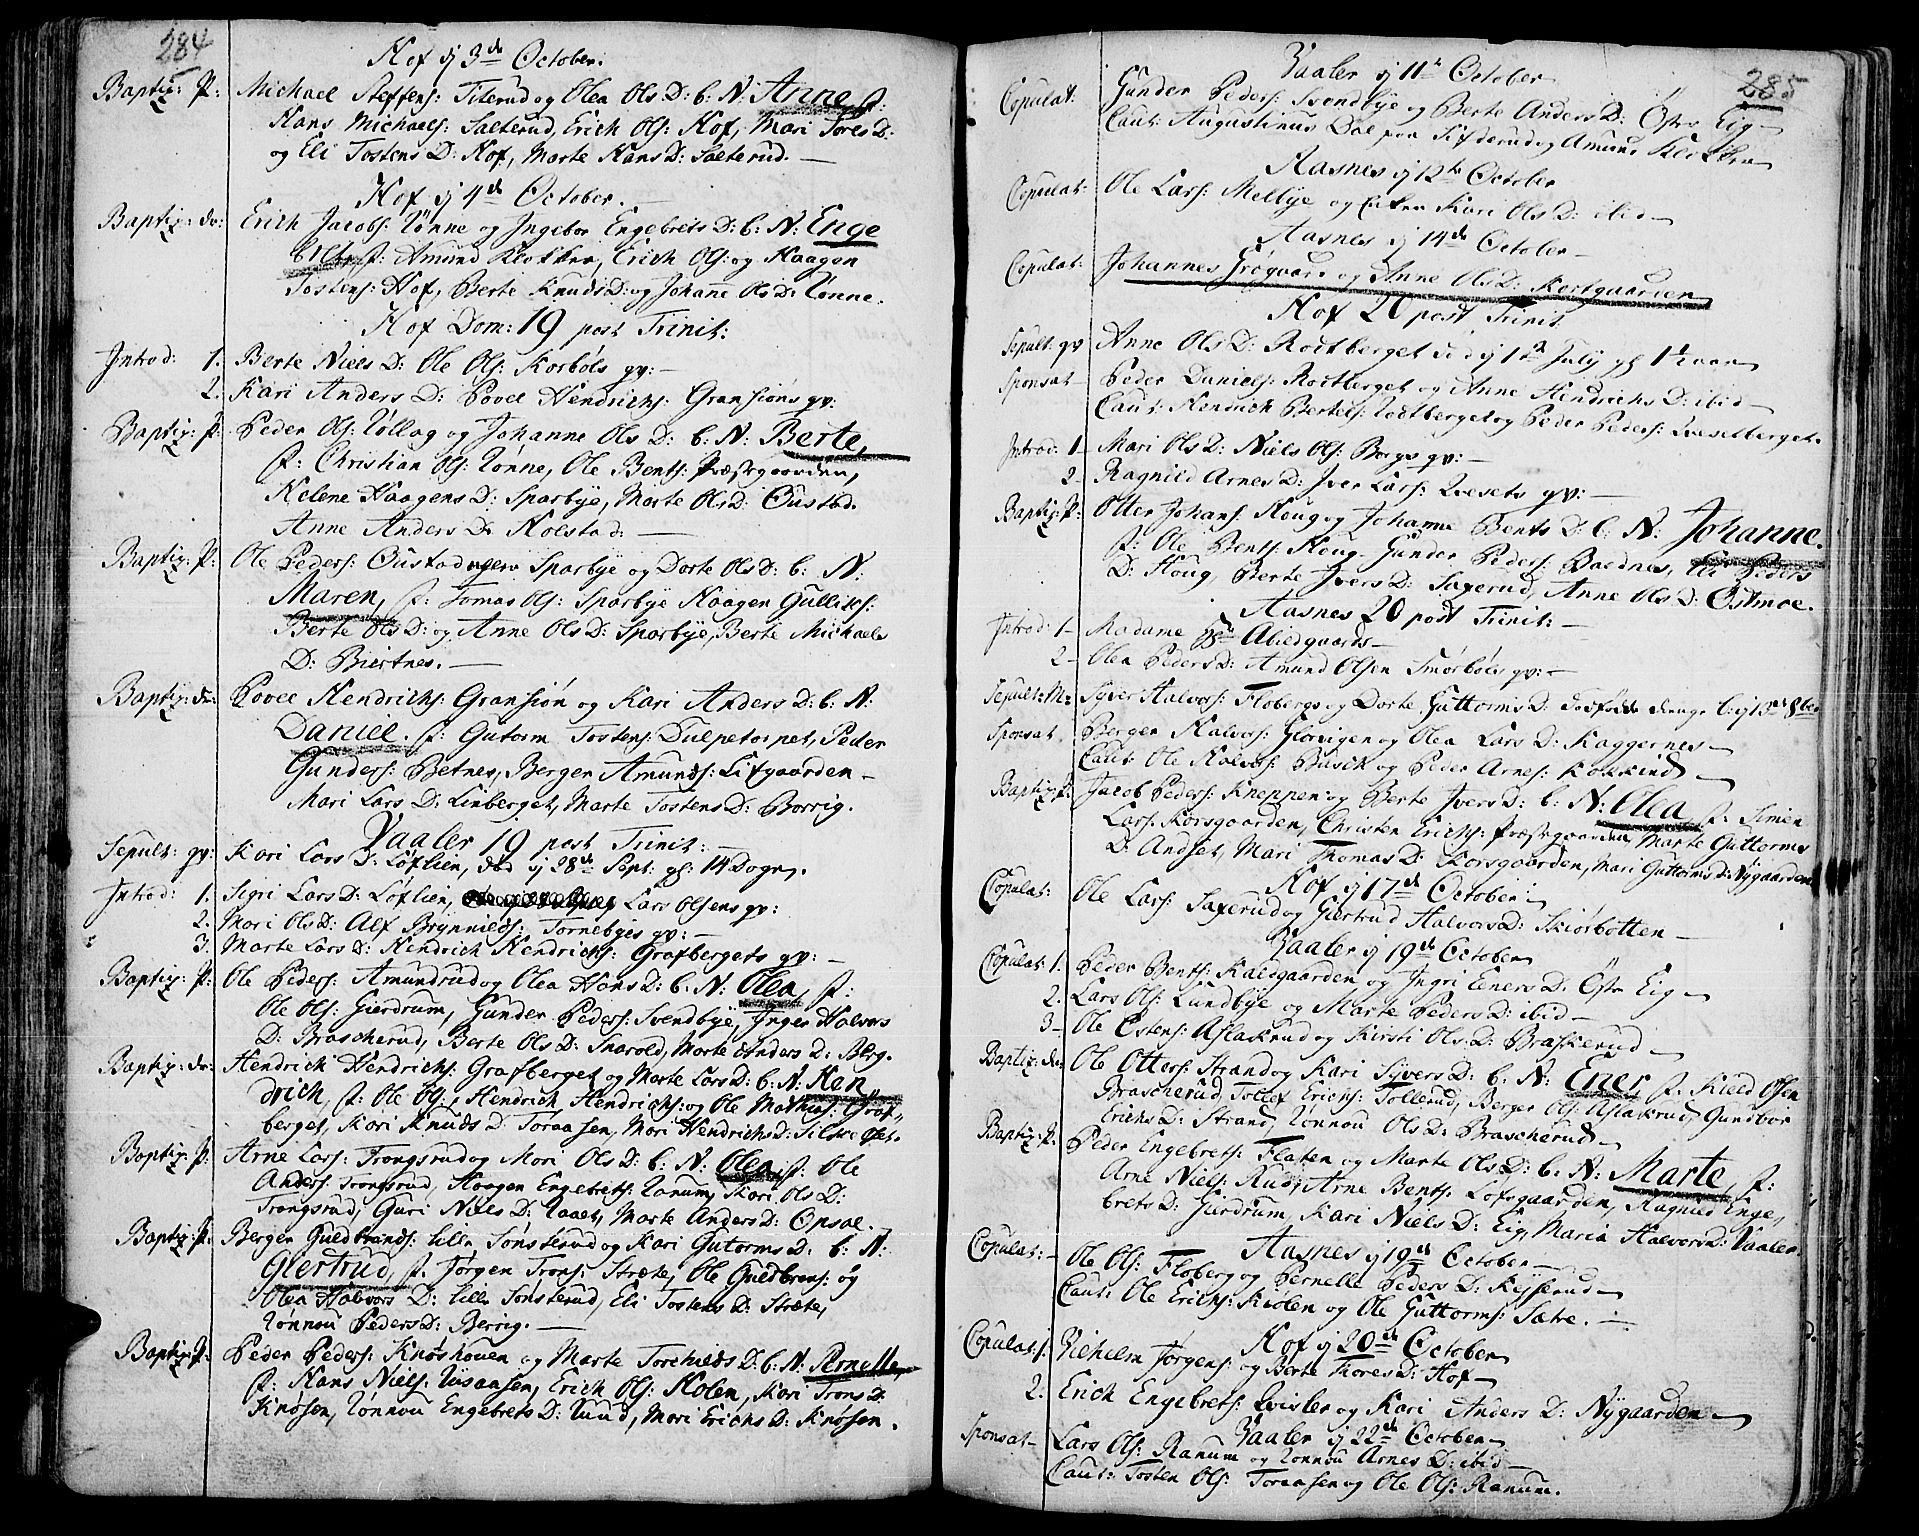 284
Hof ij 3de October.
Baptiz: P: Michael Steffens: Titerud og Olea Ols D: b: N: Anne, f:
Hans Michaels: Sælterud, Erich Ols: Hof, Mari Tores D:
og Eli Tostens D: Hof, Marte Hans D: Sælterud. —
Hof ij 4de October. —
Baptiz: dr: Erich Jacobs: Rønne og Ingebor Engebrets D: b: N: Enge
bret, f: Amund Klokker, Erich Ols: og Haagen
Tostens: Hof, Berte Knuds D: og Johanne Ols D: Rønne.
Hof Dom: 19 post Trinit:
Introd: 1. Berte Niels D: Ole Ols: Korbøls qv: —
2. Kari Anders D: Povel Hendrichs: Gransiøns qv:
Baptiz: P: Peder Ols: Røllag og Johanne Ols D: b: N: Berte,
f: Christian Ols: Rønne, Ole Bents: Præstegaarden,
Helene Haagens D: Sparbye, Marte Ols D: Oustad.
Anne Anders D: Holstad: —
Baptiz: P: Ole Peders: Oustadeyern Sparbye og Dorte Ols D: b: N:
Maren, f: Tomas Ols: Sparbye Haagen Gullichs:
Berte Ols D: og Anne Ols D: Sparbye, Berte Michaels
D: Biertnes. —
Baptiz: dr: Povel Hendrichs: Gransiøn og Kari Anders D: b: N:
Daniel. f: Gutorm Tostens: Dulpetorpet, Peder
Gunders: Betnes, Berger Amunds: Lifgaarden —
Mari Lars D: Linberget, Marte Tostens D: Borrig.
Vaaler 19 post Trinit: —
Sepult: qv: Kari Lars D: Løflien, død ij 28de Sept: gl: 14 Dogn.
Introd: 1. Sigri Lars D: Løflien, Lars Olsens qv:
2. Mari Ols D: Alf Brynnilds: Tornebyes qv: —
3. Marte Lars D: Hendrich Hendrichs: Grafbergets qv: —
Baptiz: P: Ole Peders: Amundrud og Olea Hans D: b: N: Olea, f:
Ole Ols: Gierdrum, Gunder Peders: Svendbye, Inger Halvors
D: Brascherud, Berte Ols D: Snarold, Marte Anders D: Berg.
Baptiz: dr: Hendrich Hendrichs: Grafberget og Marte Lars D: b: N: Hen
drich, f: Ole Ols:, Hendrich Hendrichs: og Ole Mathias: Graf„
berget, Kari Knuds D: Toraasen, Mari Hendrichs D: Silkeset.
Baptiz: P: Arne Lars: Trongsrud og Mari Ols D: b: N: Olea, f: Ole
Anders: Trongsrud, Haagen Engebrets: Ranum, Kari Ols D:
Trongsrud, Guri Niels D: Raaet, Marte Anders D: Opsal. —
Baptiz: P: Berger Guldbrands: lille Sønsterud og Kari Gutorms D: b: N:
Giertrud, f: Jørgen Trons: Stræte, Ole Guldbrens: og
Olea Halvors D: lille Sønsterud, Eli Tostens D: Stræte,
Rønnou Peders D: Berrig. —
Baptiz: P: Peder Peders: Knøshouen og Marte Torchilds D: b: N: Pernille,
f: Hans Niels: Risaasen, Erich Ols: Holen, Kari Trons D:
Knøsen, Rønnou Engebrets D: Ruud, Mari Erichs D: Knøsen.
285
Vaaler ij 11te October
Copulat: Gunder Peders: Svendbye og Berte Anders D: Østre Eig —
Caut: Augustinus Dal paa Sifderud og Amund Klokker
Aasnes ij 12te October
Copulat: Ole Lars: Melbye og Enken Kari Ols D: ibid —
Aasnes ij 14de October —
Copulat: Johannes Grøgaard og Anne Ols D: Kortgaarden
Hof 20 post Trinit.
Sepult: qv Anne Ols D: Rodtberget død ij 1de July gl 1½ aar
Sponsat — Peder Daniels: Rodtberget og Anne Hendrichs D: ibid —
Caut: Hendrich Bertels: Rodtberget og Peder Peders: Qvesetberget.
Introd: 1 — Mari Ols D: Niels Ols: Bergs qv: —
2 — Ragnild Arnes D: Iver Lars: Qvesets qv: —
Baptiz: P: Otter Johans: Houg og Johanne Bents D: b: N: Johanne.
f: Ole Bents: Houg. Gunder Peders: Baednes, Eli Peders
D: Houg, Berte Ivers D: Saxerud, Anne Ols D: Ostmoe.
Aasnes 20 post Trinit: —
Introd: 1 — Madame Abedgaards —
2 — Olea Peders D: Amund Olsen Smørbøls qv: —
Sepult: M: Syver Halvors: Flobergs og Dorte Guttorms D: dødfødde drenge b: ij 13de 8bris
Sponsat. Berger Halvors: Glorvigen og Olea Lars D: Kaggernes —
Caut: Ole Halvors: Busch og Peder Arnes: Kokkind —
Baptiz: P: Jacob Peders: Kneppen og Berte Ivers D: b: N: Olea f: Simen
Lars: Korsgaarden, Christen Erichs: Præstegaarden, Marte Guttorms
D: Andset, Mari Thomas D: Korsgaarden, Mari Guttorms D: Nygaarden
Hof ij 17de October —
Copulat: Ole Lars: Saxerud og Giertrud Halvors D: Skiørbotten —
Vaaler ij 19de October
Copulat: 1. Peder Bents: Kalsgaarden og Ingri Eners D: Østre Eig —
2. Lars Ols: Lundbye og Marte Peders D: ibid —
3 — Ole Estens: Aslakrud og Kirsti Ols D: Braskerud —
Baptiz: dr: Ole Otters: Strand og Kari Syvers D: b: N: Ener f: Kield Olsen
Brascherud, Tollef Erichs: Tollerud, Berger Ols: Aslakrud, Gundbor
Erichs D: Strand, Rønnou Ols D: Brascherud —
Baptiz: P: Peder Engebrets: Flaten og Marte Ols D: b: N: Marte, f:
Arne Niels: Rud, Arne Bents: Lofsgaarden, Ragnild Enge„
brets D: Gierdrum, Kari Niels D: Eig, Maria Halvors D: Vaaler.
Aasnes ij 19de October —
Copulat: — Ole Ols: Floberg og Pernelle Peders D: Keyserud —
Caut: Ole Erichs: Kiølen og Ole Guttorms: Sætre. —
Hof ij 20de October
Copulat: 1. Vilhelm Jørgens: og Berte Thores D: Hof —
2. Erich Engebrets: Qvisler og Kari Anders D: Nygaarden —
Vaaler ij 22de October —
Sponsat — Lars Ols: Ranum og Rønnou Arnes D: ibid —
Caut: Tosten Ols: Toraasen og Ole Ols: Ranum.